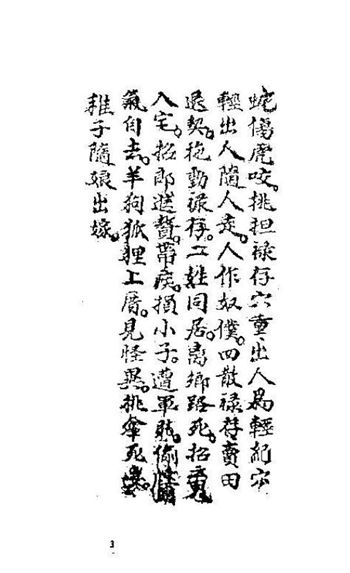 蛇傷虎咬。挑担祿存穴重。出人為輕紀
輕出人隨人走。人作奴僕。四散祿存賣田
退契。拖動祿存。二姓同居。離鄉路死。招
入宅。招郎送贅。帶疾。損小子。遭軍賊。偷
氣自去。羊狗狐狸上厝。見怪異。挑傘死
稚子隨娘出嫁。
3